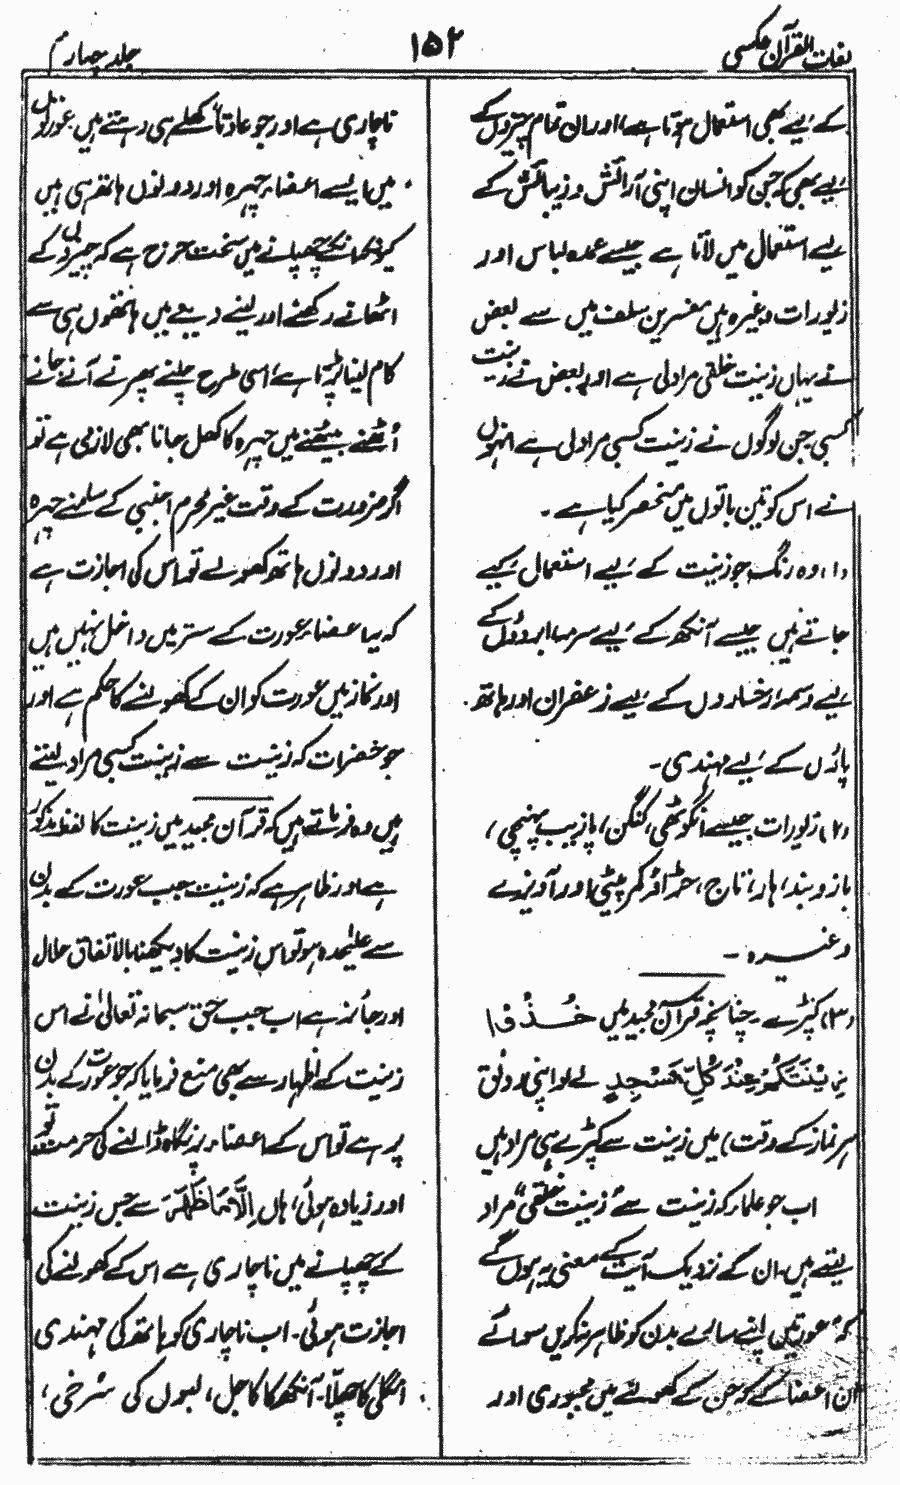 لغات القرآن عکسی
۱۵۲
جلد چہارم
کے لیے بھی استعمال ہوتا ہے، اور ان تمام چیزوں کے
لیے بھی کہ جن کو انسان اپنی آرائش و زیبائش کے
لیے استعمال میں لاتا ہے جیسے عمدہ لباس اور
زیورات وغیرہ ہیں مفسرین سلف میں سے بعض
نے یہاں زینت خلقی مراد لی ہے اور بعض نے زینت
کسبی جن لوگوں نے زینت کسبی مراد لی ہے انہوں
نے اس کو تین باتوں میں منحصر کیا ہے۔
(۱) وہ رنگ جو زینت کے لیے استعمال کیے
جاتے ہیں جیسے آنکھ کے لیے سرمہ ابروؤں کے
لیے وسمہ رخساروں کے لیے زعفران اور ہاتھ
پاؤں کے لیے مہندی۔
(۲) زیورات جیسے انگوٹھی، کنگن، پازیب پہنچی،
بازوبند، ہار، تاج، جڑاؤ کمر پیٹی اور آویزے
وغیرہ۔
(۳) کپڑے چنانچہ قرآن مجید میں خُذُوْا
زِيْنَتَكُمْ عِنْدَ كُلِّ مَسْجِدٍ لے لو اپنی رونق
ہر نماز کے وقت) میں زینت سے کپڑے ہی مراد ہیں
اب جو علماء کہ زینت سے زینت خلقی مراد
لیتے ہیں۔ ان کے نزدیک آیت کے معنی یہ ہوں گے
کہ عورتیں اپنے سارے بدن کو ظاہر نہ کریں سوائے
ان اعضا کے کہ جن کے کھولنے میں مجبوری اور
ناچاری ہے اور جو عادتاً کھلے ہی رہتے ہیں عورتوں
میں ایسے اعضاء چہرہ اور دونوں ہاتھ ہی ہیں
کیونکہ انکے چھپانے میں سخت حرج ہے کہ چیز کے
اٹھانے رکھنے اور لینے دینے میں ہاتھوں ہی سے
کام لینا پڑتا ہے، اسی طرح چلنے پھرنے آنے جانے
اُٹھنے بیٹھنے میں چہرہ کا کھل جانا بھی لازمی ہے تو
اگر ضرورت کے وقت غیر محرم اجنبی کے سامنے چہرہ
اور دونوں ہاتھ کھولے تو اس کی اجازت ہے
کہ یہ اعضاء عورت کے ستر میں داخل نہیں ہیں
اور نماز میں عورت کو ان کے کھولنے کا حکم ہے اور
جو حضرات کہ زینت سے زینت کسبی مراد لیتے
ہیں وہ فرماتے ہیں کہ قرآن مجید میں زینت کا لفظ مذکور
ہے اور ظاہر ہے کہ زینت جب عورت کے بدن
سے علیٰحدہ ہو تو اس زینت کا دیکھنا بالاتفاق حلال
اور جائز ہے اب جب حق سبحانہ تعالیٰ نے اس
زینت کے اظہار سے بھی منع فرمایا کہ جو عورت کے بدن
پر ہے تو اس کے اعضاء پر نگاہ ڈالنے کی حرمت تو
اور زیادہ ہوئی، ہاں اِلَّا مَا ظَهَرَ سے جس زینت
کے چھپانے میں ناچاری ہے اس کے کھولنے کی
اجازت ہوئی۔ اب ناچاری کو ہاتھ کی مہندی
انگلی کا چھلّا۔ آنکھ کا کاجل، لبوں کی سُرخی،